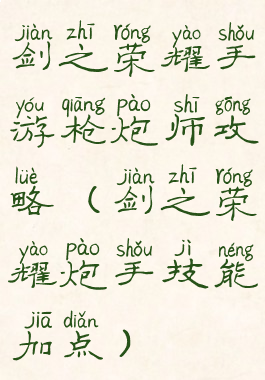 jiàn zhī róng yào shǒu
剑之荣耀手
yóu qiāng pào shī gōng
游枪炮师攻
lüè jiàn zhī róng
略（剑之荣
yào pào shǒu jì néng
耀炮手技能
jiā diǎn
加点）